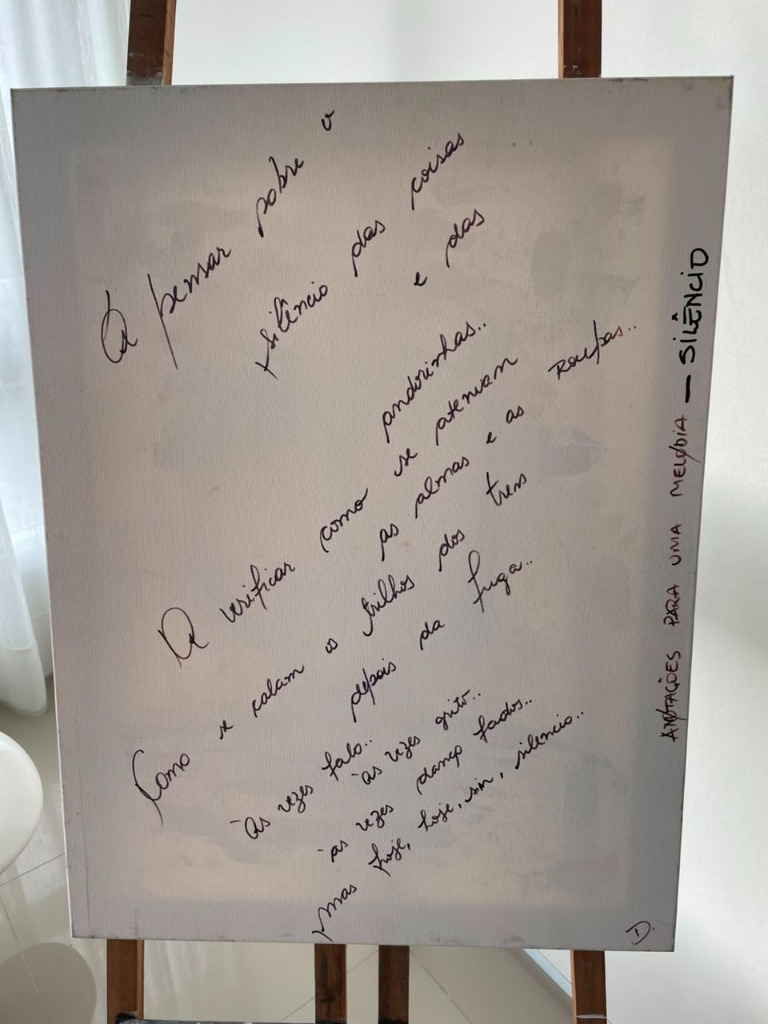 A pensar sobre o
silêncio das coisas
e das
andorinhas..
A verificar como se atenuam
as almas e as roupas..
Como se calam os trilhos dos trens
depois da fuga..
às vezes falo..
às vezes grito..
às vezes danço fados..
mas hoje, hoje, sim, silencio..
ANOTAÇÕES PARA UMA MELODIA — SILÊNCIO
D.